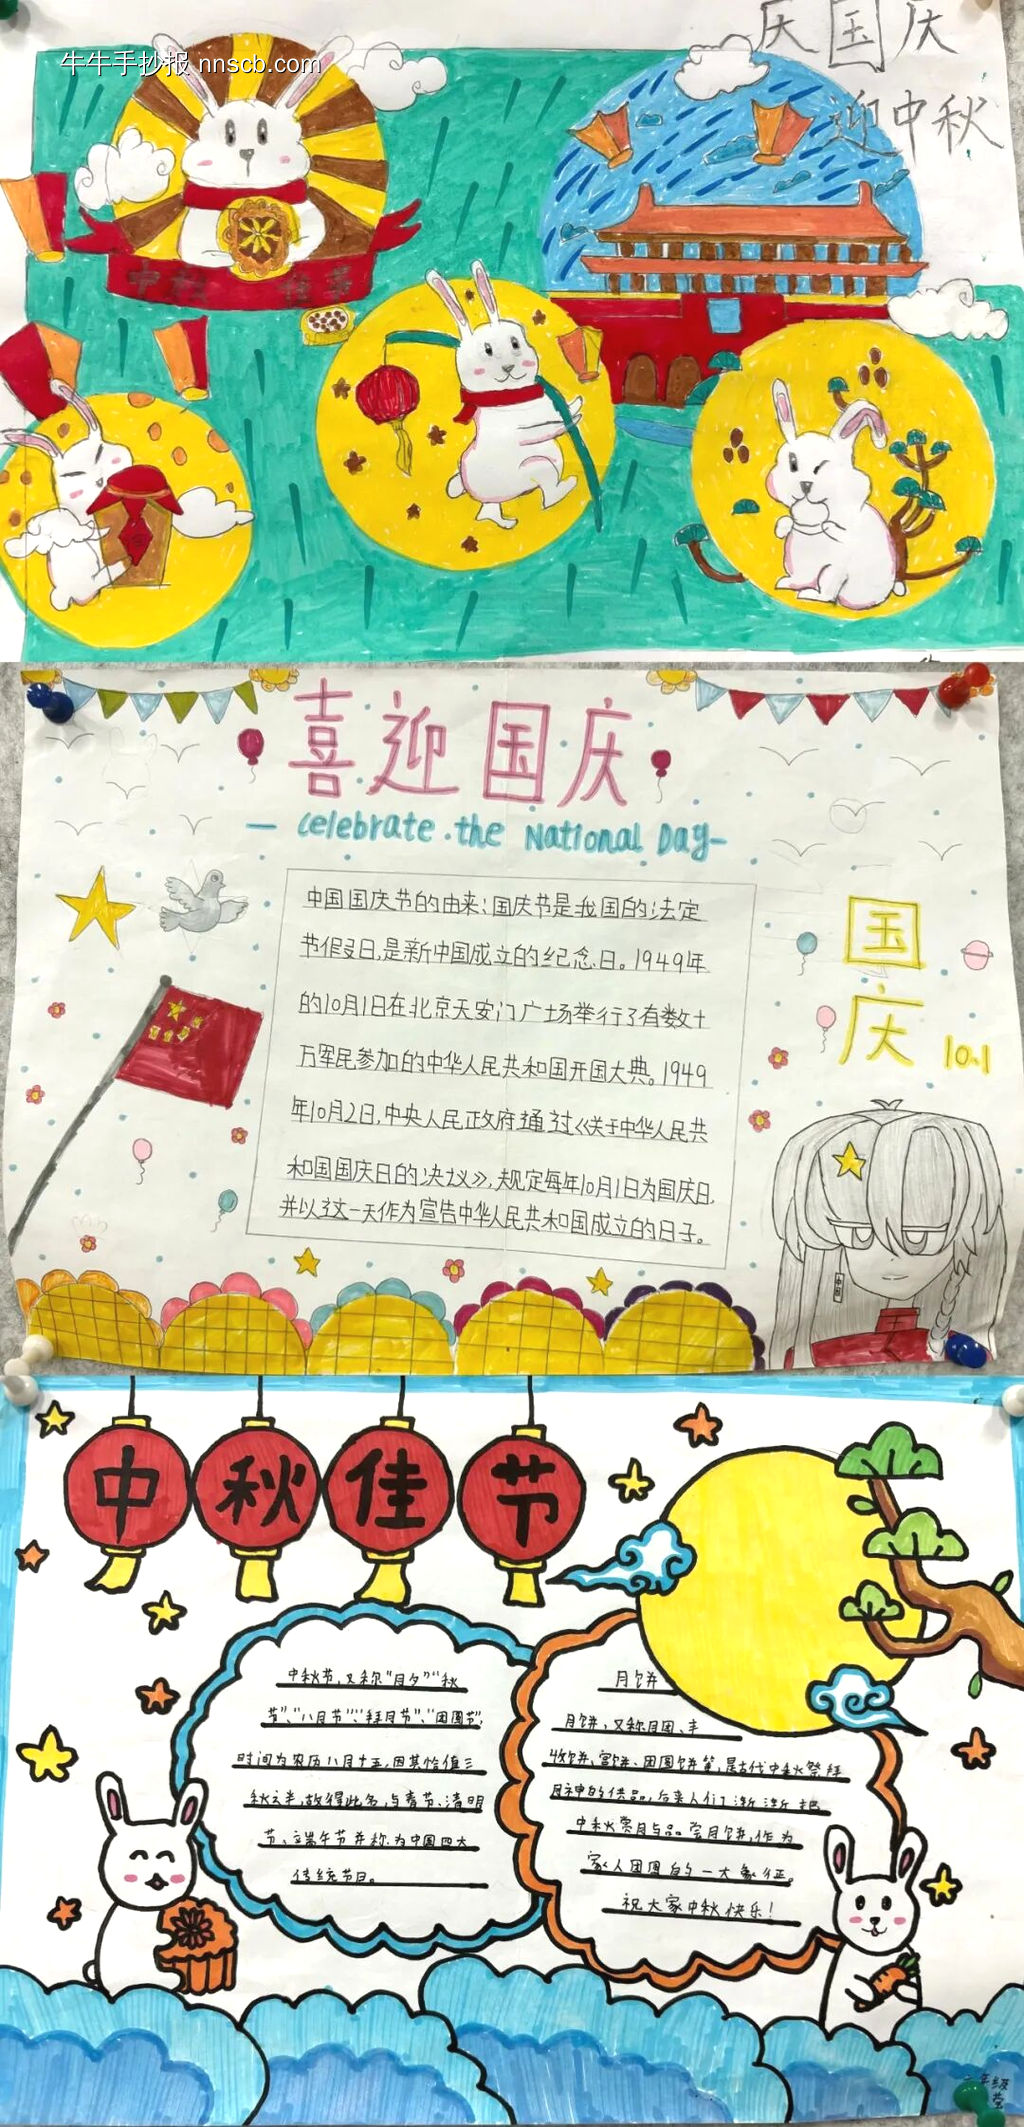 牛牛手抄报 nnscb.com
庆国庆
迎中秋
中秋 佳节
喜迎国庆
— celebrate the National Day —
中国国庆节的由来:国庆节是我国的法定
节假日,是新中国成立的纪念日。1949年
的10月1日在北京天安门广场举行了有数十
万军民参加的中华人民共和国开国大典。1949
年10月2日,中央人民政府通过《关于中华人民共
和国国庆日的决议》,规定每年10月1日为国庆日,
并以这一天作为宣告中华人民共和国成立的日子。
国
庆
10.1
中国
中秋佳节
中秋节,又称“月夕”“秋
节”、“八月节”“拜月节”、“团圆节”,
时间为农历八月十五,因其恰值三
秋之半,故得此名,与春节、清明
节、端午节并称为中国四大
传统节日。
月饼
月饼,又称月团、丰
收饼、宫饼、团圆饼等,是古代中秋祭拜
月神的供品,后来人们渐渐把
中秋赏月与品尝月饼,作为
家人团圆的一大象征。
祝大家中秋快乐!
年级